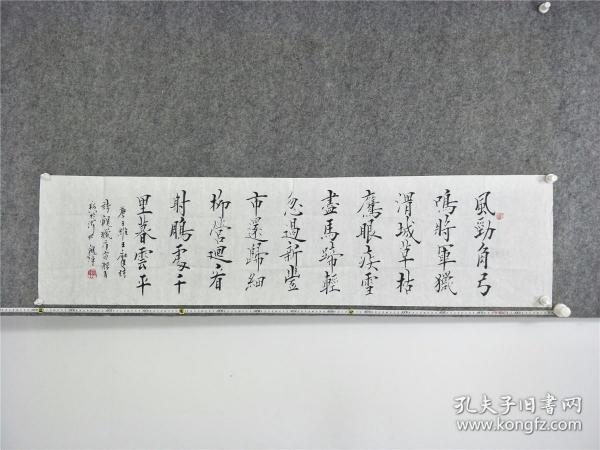 風勁角弓
鳴將軍獵
渭城草枯
鷹眼疾雪
盡馬蹄輕
忽過新豐
市還歸細
柳營迴看
射鵰處千
里暮雲平
唐王維王摩詰
孔夫子旧书网
www.kongfz.com